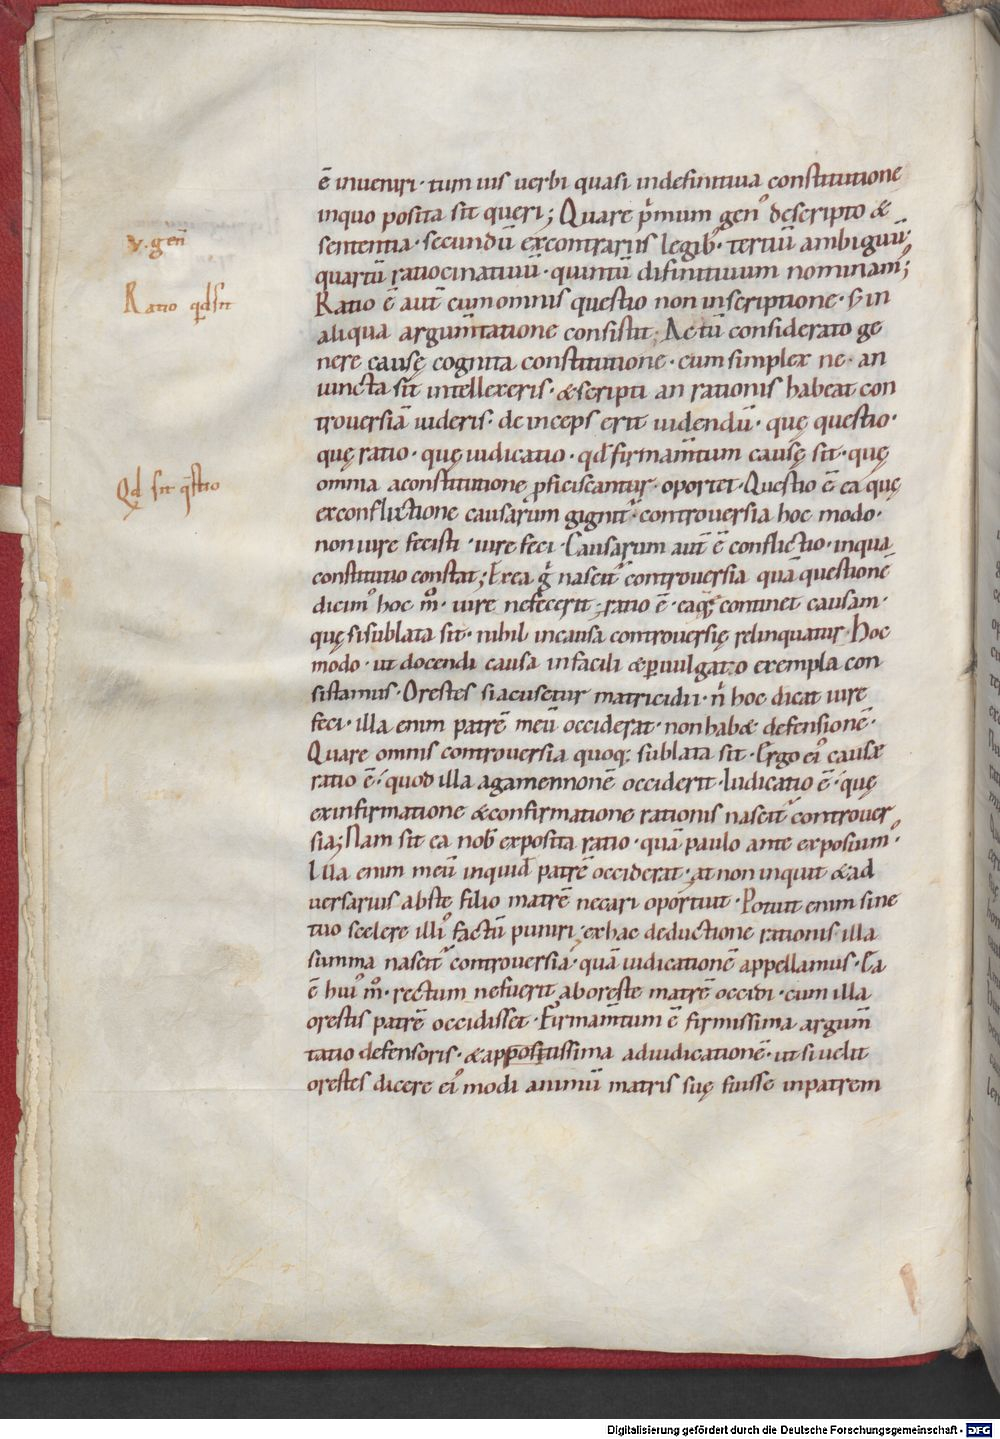 v. gen̄
Ratio qđ sit
Qđ sit q̄stio
ē inveniri · tum uis uerbi quasi indefinitiua constitutione
inquo posita sit queri; Quare p̾mum gen᾽ descripto &
sententia · secundū excontrariis legib᾽ · tertiū ambiguū ·
quartū ratiocinatiuū · quintū difinitiuum nominam᾽;
Ratio ē aut̄ cum omnis questio non inscriptione · sȷ in
aliqua argum̄tatione consistit; Ac tū considerato ge
nere causę cognita constitutione · cum simplex ne · an
iuncta sit intellexeris · & scripti an rationis habeat con
trouersiā uideris · deinceps erit uidendū · quę questio ·
quę ratio · quę iudicatio · qđ firmam̄tum causę sit · quę
omnia aconstitutione ꝓficiscantur · oportet · Questio ē ea quę
exconflictione causarum gignit᾽ · controuersia hoc modo ·
non iure fecisti · iure feci · Causarum aut̄ ē conflictio · inqua
constitutio constat; Ex ea g̾ nascit᾽ controuersia quā questionē
dicim᾽ hoc m̊ · iure ne fecerit; ratio ē · ea quę continet causam ·
quę si sublata sit · nihil incausa controuersię relinquatur · Hoc
modo · ut docendi causa infacili & ꝑuulgato exemplo con
sistamus · Orestes si acusetur matricidii · n̾ hoc dicat iure
feci · illa enim patrē meū occiderat · non hab& defensionē ·
Quare omnis controuersia quoq; sublata sit · Ergo ei᾽ causæ
ratio ē · quod illa agamennonē occiderit · Iudicatio ē · quę
exinfirmatione & confirmatione rationis nascit᾽ controuer
sia; Nam sit ea nob᾽ exposita ratio · quā paulo ante exposuim᾽ ·
Illa enim meū inquid patrē occiderat · at non inquit & ad
uersarius abs te filio matrē necari oportuit · Potuit enim sine
tuo scelere illi᾽ factū puniri · ex hac deductione rationis illa
summa nascit᾽ controuersia · quā iudicationē appellamus · Ea
ē hui᾽ m̊ · rectum ne fuerit aboreste matrē occidi · cum illa
orestis patrē occidisset · Firmam̄tum ē firmissima argum̄
tatio defensoris · & appositissima adiudicationē · ut si uelit
orestes dicere ei᾽ modi animū matris suę fuisse inpatrem
Digitalisierung gefördert durch die Deutsche Forschungsgemeinschaft - DFG